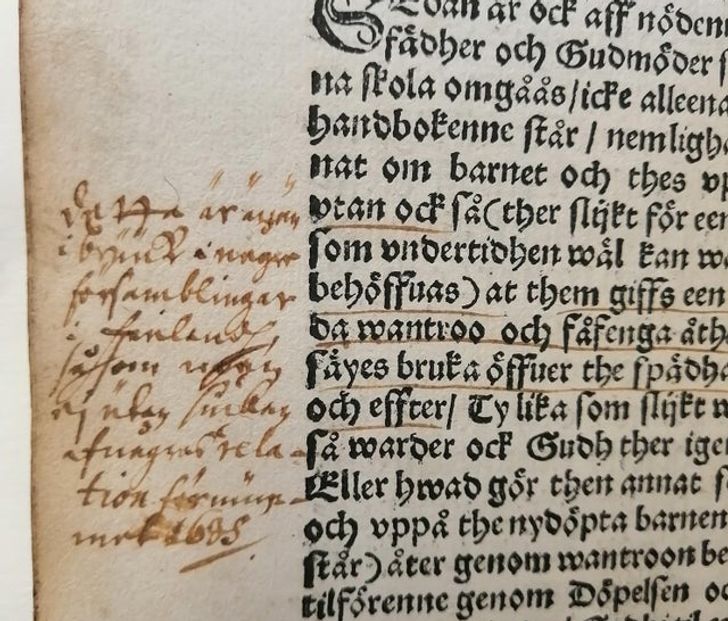 Sedan är ock aff nöden
fädher och Gudmöder s
na skola omgåås/icke alleena
handbokenne står / nemligh
nat om barnet och thes v
vtan ock så (ther slijkt för een
som vndertidhen wäl kan w
behöffuas) at them giffs een
da wantroo och fåfenga åth
säyes bruka öffuer the spädh
och effter/ Ty lika som slijkt w
så warder ock Gudh ther ige
Eller hwad gör then annat s
och vppå the nydöpta barnen
står) åter genom wantroon be
tilförenne genom Döpelsen oc
Detta är ägen
i bruuk i någre
forsamblingar
i Finland,
såsom
af någras rela-
tion förnum-
met 1635